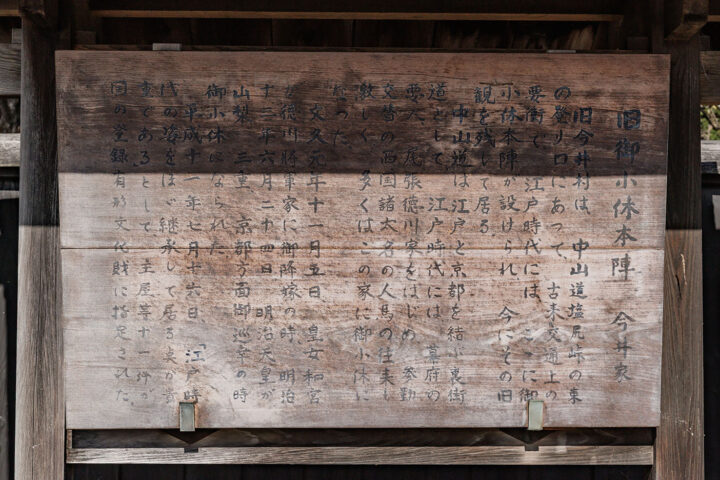 旧御小休本陣　今井家
旧今井村は、中山道塩尻峠の東
の登り口にあって、古来交通上の
要衝で、江戸時代には、ここに御
小休本陣が設けられ、今にその旧
観を残して居る。
中山道は江戸と京都を結ぶ裏街
道として、江戸時代には、幕府の
要人、尾張徳川家をはじめ、参勤
交替の西国諸大名の人馬の往来も
激しく、多くはこの家に御小休に
なった。
文久元年十一月五日、皇女和宮
が徳川将軍家に御降嫁の時、明治
十三年六月二十四日、明治天皇が
山梨、三重、京都方面御巡幸の時
御小休になられた。
平成十一年七月十六日、江戸時
代の姿をほゞ継承して居る事が貴
重であるとして、主屋等十一件が
国の登録有形文化財に指定された。